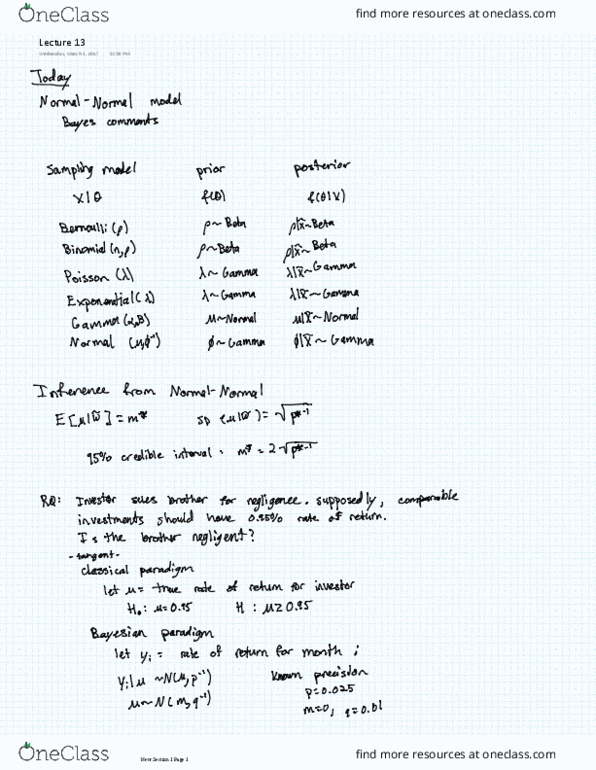 OneClass
find more resources at oneclass.com
Lecture 13
Wednesday, March 1, 2017
Today
Normal-Normal model
Bayes comments
Sampling model prior posterior
x|θ f(θ) f(θ|x)
Bernoulli (p) p~ Beta p|x̃~Beta
Binomial (n,p) p~Beta p|x̃~ Beta
Poisson (λ) λ~ Gamma λ|x̃~Gamma
Exponential (λ) λ~ Gamma λ|x̃~ Gamma
Gamma (α,β) μ~Normal μ|x̃~ Normal
Normal (μ,φ⁻¹) φ~ Gamma φ|x̃~ Gamma
Inference from Normal-Normal
E[μ|ỹ] = m* SD (μ|ỹ) = √p*⁻¹
95% credible interval: m* = 2√p*⁻¹
RQ: Investor sues brother for negligence. supposedly, comparable
investments should have 0.95% rate of return.
Is the brother negligent?
-tangent-
classical paradigm
let μ= true rate of return for investor
H₀: μ=0.95 H : μ≥0.95
Bayesian paradigm
let yᵢ = rate of return for month i
yᵢ|μ ~N(μ,p⁻¹) known precision
p=0.025
μ~N(m,q⁻¹) m=0, q=0.01
OneClass
New Section 1 Page 1
find more resources at oneclass.com